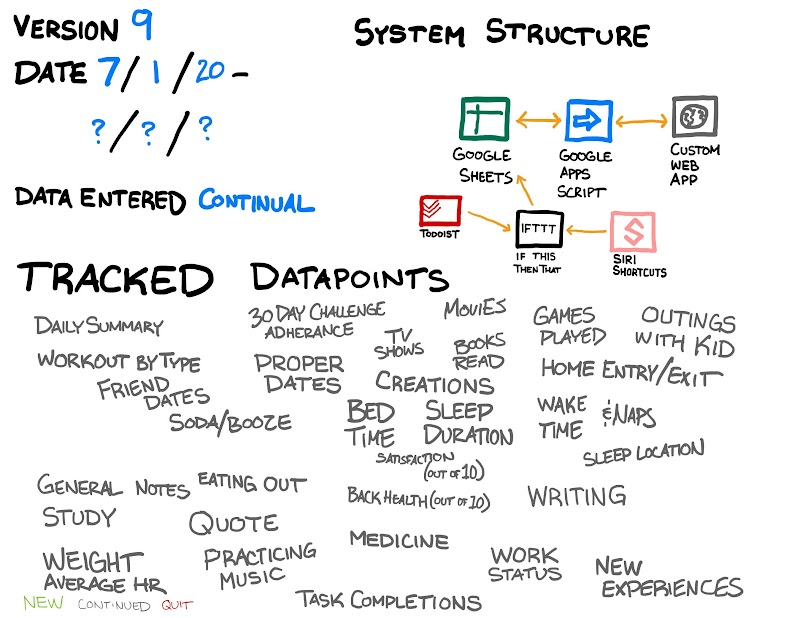 VERSION 9
DATE 7/1/20 -
?/?/?
DATA ENTERED CONTINUAL
SYSTEM STRUCTURE
GOOGLE
SHEETS
GOOGLE
APPS
SCRIPT
CUSTOM
WEB
APP
TODOIST
IFTTT
IF THIS
THEN THAT
SIRI
SHORTCUTS
TRACKED DATAPOINTS
DAILY SUMMARY
30 DAY CHALLENGE
ADHERANCE
MOVIES
GAMES
PLAYED
OUTINGS
WITH KID
WORKOUT BY TYPE
TV
SHOWS
BOOKS
READ
FRIEND
DATES
PROPER
DATES
CREATIONS
HOME ENTRY/EXIT
SODA/BOOZE
BED
TIME
SLEEP
DURATION
WAKE
TIME
& NAPS
SATISFACTION
(OUT OF 10)
SLEEP LOCATION
GENERAL NOTES
EATING OUT
BACK HEALTH (OUT OF 10)
WRITING
STUDY
QUOTE
MEDICINE
WEIGHT
AVERAGE HR
PRACTICING
MUSIC
WORK
STATUS
NEW
EXPERIENCES
NEW CONTINUED QUIT
TASK COMPLETIONS